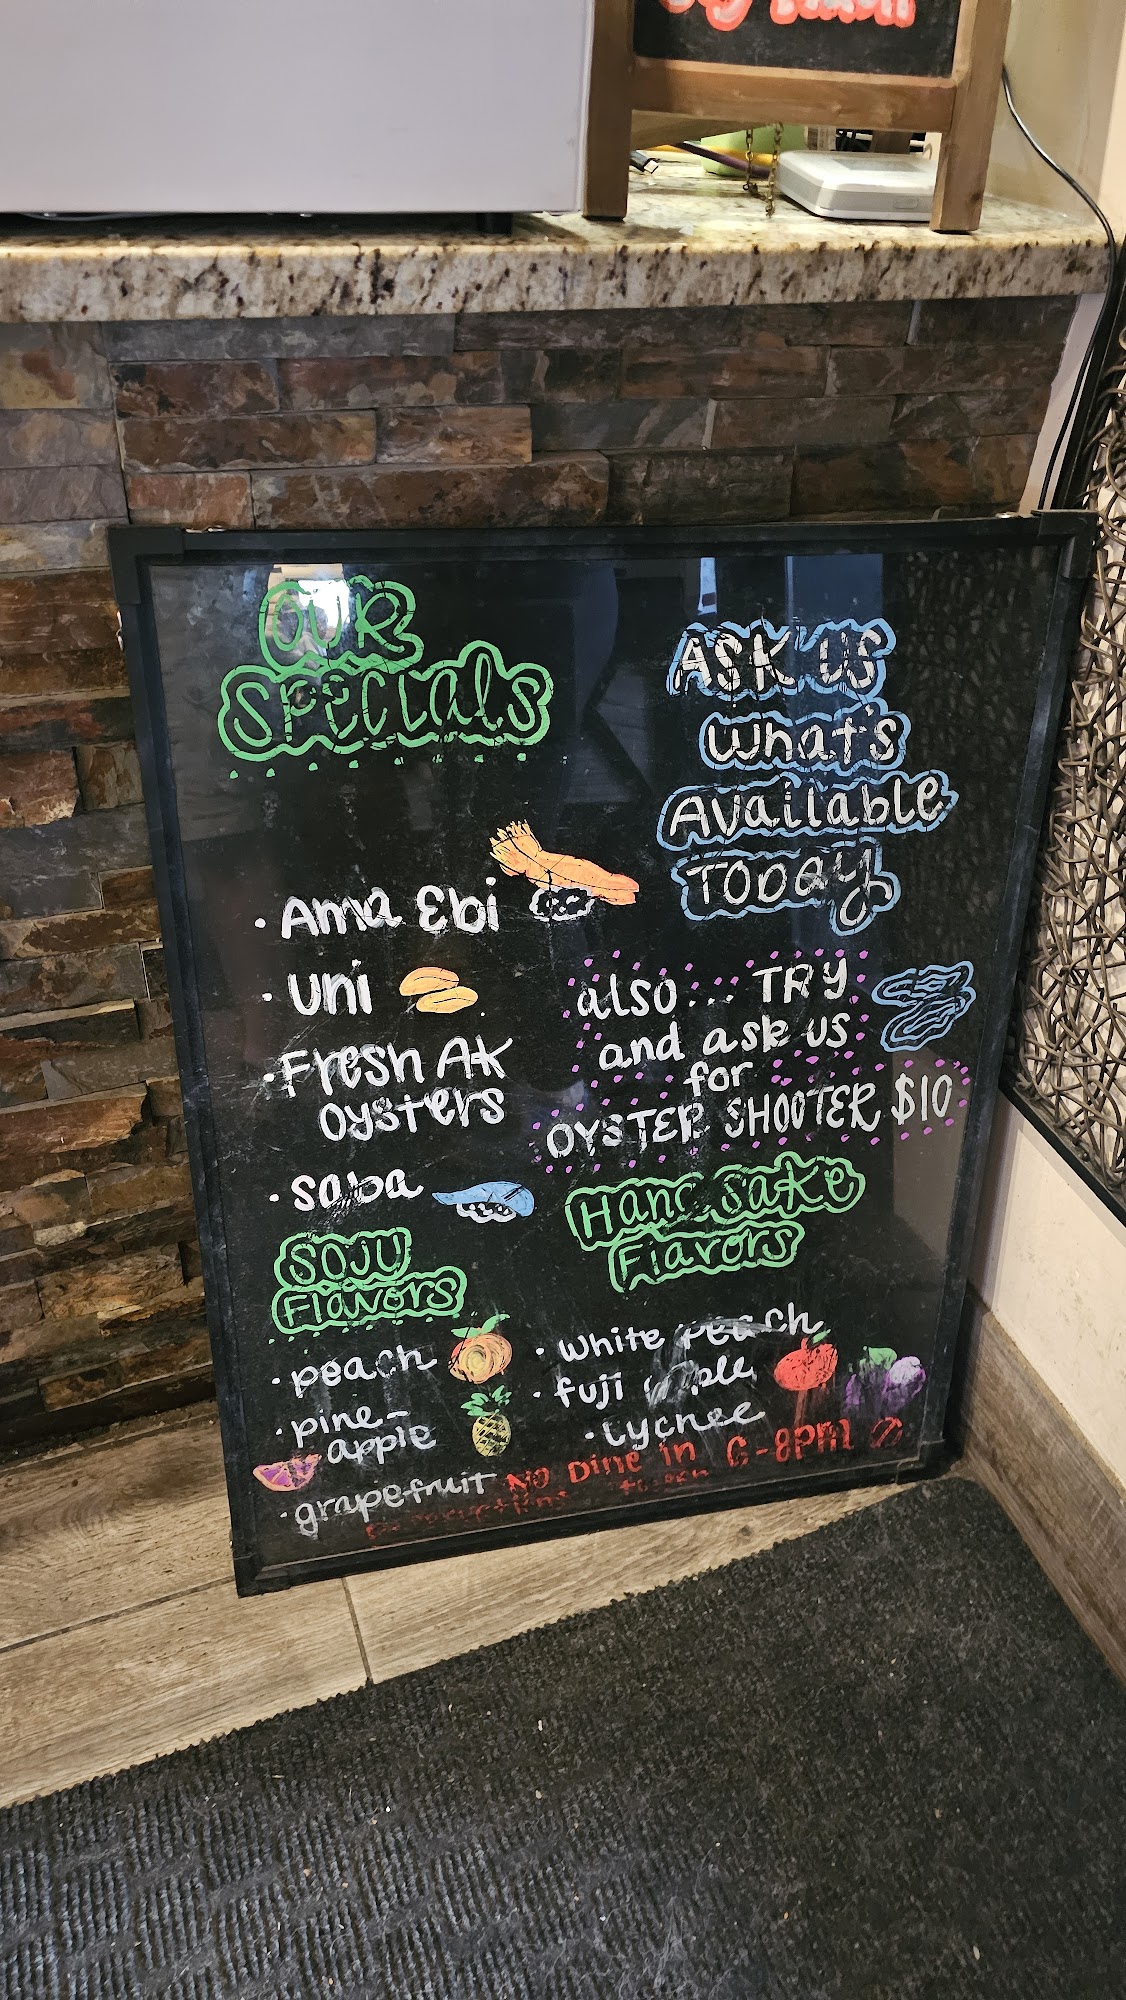 OUR
Specials
· Ama Ebi
· uni
· Fresh AK
oysters
· saba
SOJU
Flavors
· peach
· pine-
apple
· grapefruit
ASK US
what's
Available
TODAY
also... TRY
and ask us
for
OYSTER SHOOTER $10
Hana sake
Flavors
· white peach
· fuji apple
· Lychee
No Dine in 6-8PM